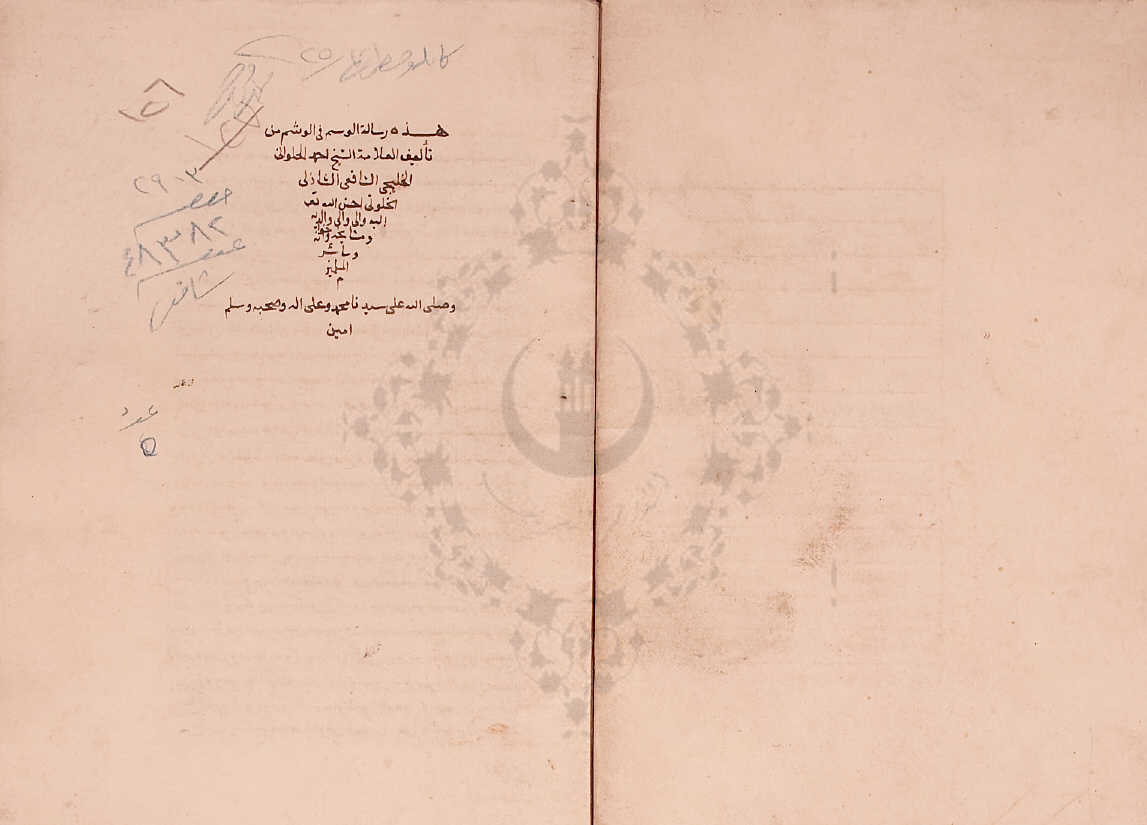 هذه رسالة الوسم في الوشم من
تأليف العلامة الشيخ احمد الحلواني
الخليجي الشافعي الشاذلي
الخلوتي احسن الله تع
اليه والى والديه
ومشايخه واخوانه
وسائر
المسلمين
م
وصلى الله على سيدنا محمد وعلى اله وصحبه وسلم
امين
٢٩٠٣
خصوصيه
٤٨٣٨٢
عموميه
شافعى
عدد
٥